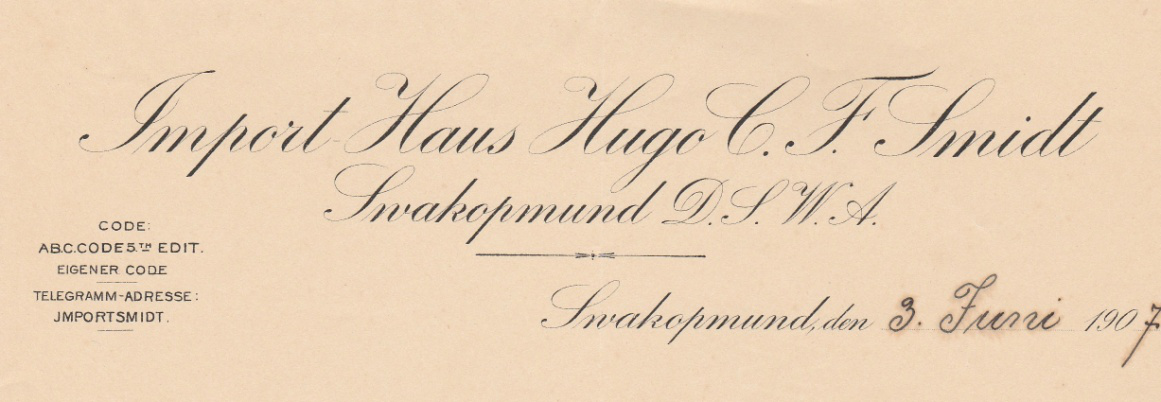 Import-Haus Hugo C. F. Smidt
Swakopmund D.S.W.A.
CODE:
A.B.C.CODE 5TH EDIT.
EIGENER CODE
TELEGRAMM-ADRESSE:
JMPORTSMIDT.
Swakopmund, den 3. Juni 1907